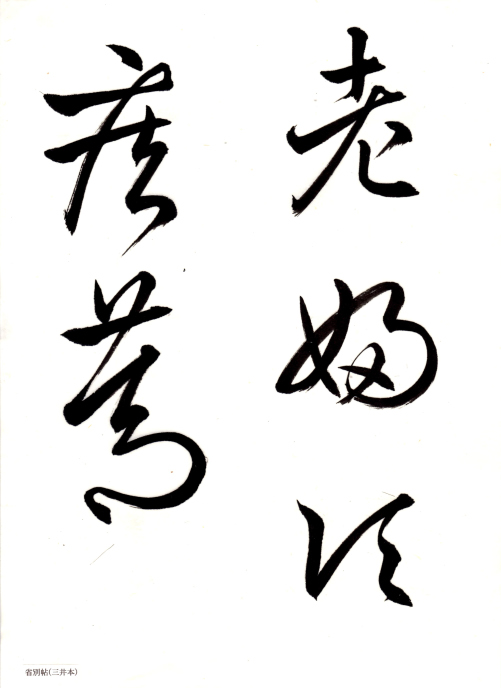 老婦頃
疾篤
省別帖(三井本)